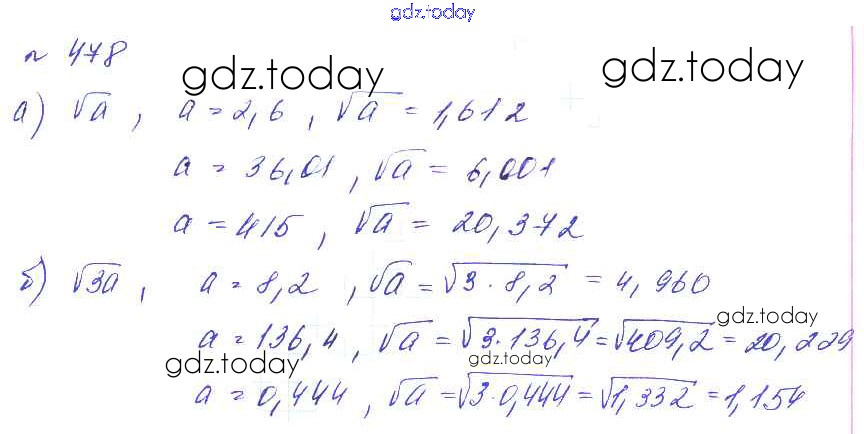 gdz.today
№ 478
gdz.today gdz.today
а) √a, a = 2,6, √a = 1,612
a = 36,01, √a = 6,001
a = 415, √a = 20,372
б) √3a, a = 8,2, √a = √3·8,2 = 4,960
gdz.today
a = 136,4, √a = √3·136,4 = √409,2 = 20,229
gdz.today gdz.today
a = 0,444, √a = √3·0,444 = √1,332 = 1,154